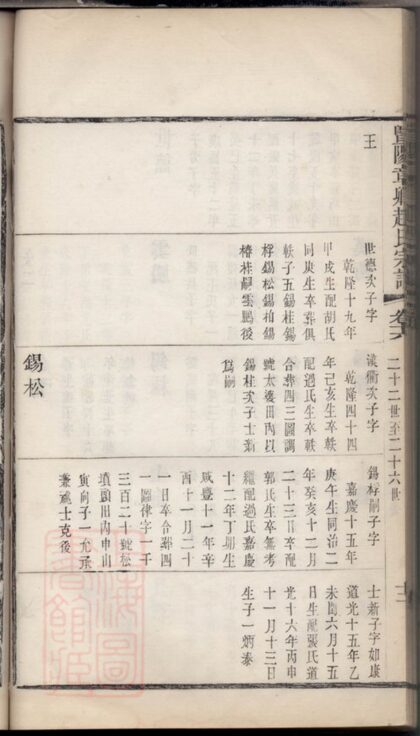 暨陽章卿趙氏宗譜
二十二世至二十六世
十二
王
世德次子字
乾隆十九年
甲戌生配胡氏
同庚生卒葬俱
軼子五錫桂錫
桴錫松錫柏錫
椿桂嗣雲鵬後
次子字
乾隆四十四
年己亥生卒軼
配過氏生卒軼
合葬四三圖調
號太婆田內以
錫桂次子士新
為嗣
錫松
錫桴嗣子字
嘉慶十五年
庚午生同治二
年癸亥十二月
二十三日卒配
郭氏生卒無考
繼配過氏嘉慶
十二年丁卯生
咸豐十一年辛
酉十一月二十
一日卒合葬四
一圖律字一千
三百二十號松
墳頭田內申山
寅向子一允承
兼祧士克後
士新子字如康
道光十五年乙
未閏六月十五
日生配張氏道
光十六年丙申
十一月十三日
生子一炳泰